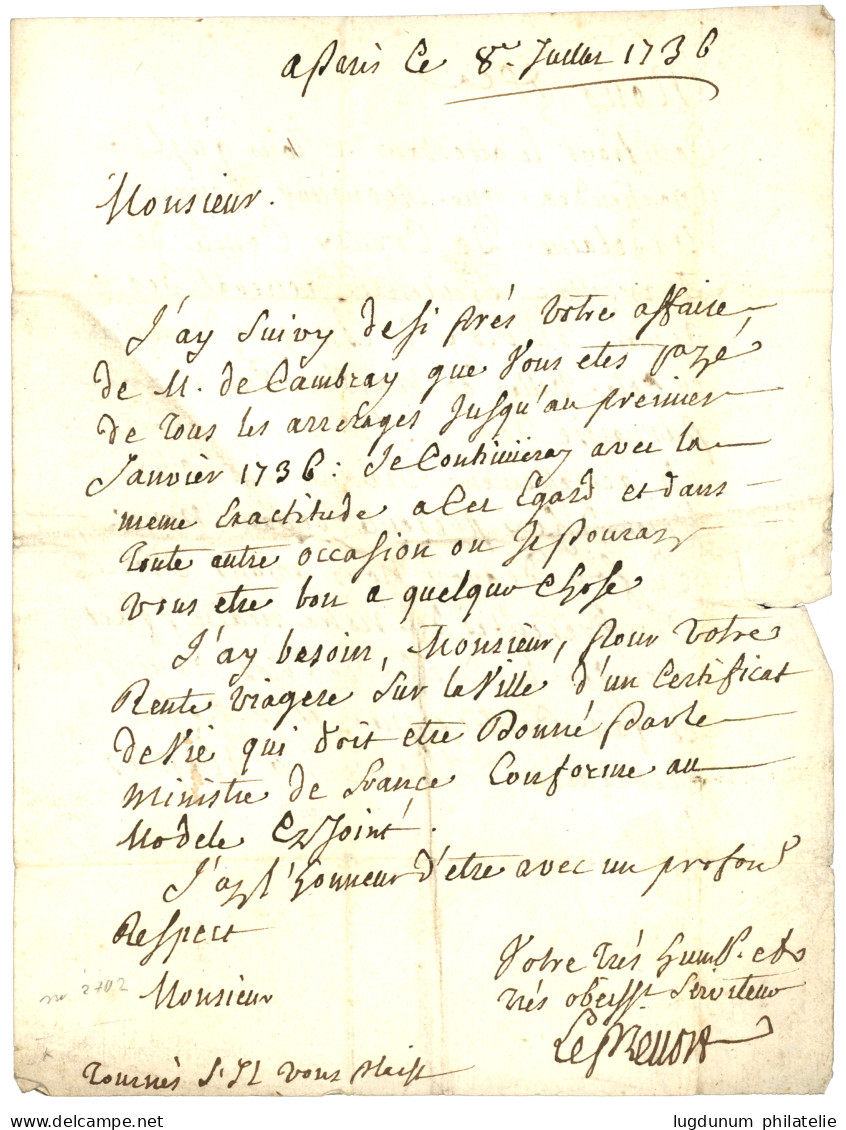 a Paris Ce 8e Juillet 1736
Monsieur.
J'ay Suivy de si prés Votre affaire
de M. de Cambray que Vous etes payé
de Tous les arrerages Jusqu'au premier
Janvier 1736: Je Continüeray avec la
meme Exactitude a Cet Egard et dans
Toute autre occasion ou Je Pouray
vous etre bon a quelque Chose
J'ay besoin, Monsieur, pour Votre
Rente viagere Sur la Ville d'un Certificat
de Vie qui doit etre Donné Par le
Ministre de France Conforme au
Modele Cy Joint.
J'ay l'honneur d'etre avec un profond
Respect
Monsieur
Votre Trés humb. et
Trés obeisst. Serviteur
no 2702
Tournés S'Il vous plaist
lugdunum philatelie